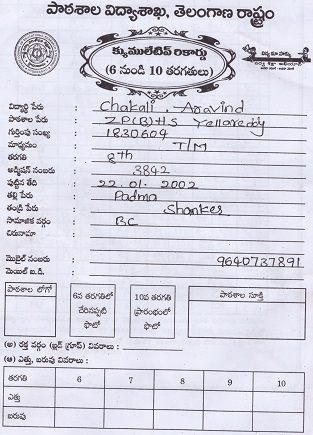 పాఠశాల విద్యాశాఖ, తెలంగాణ రాష్ట్రం
క్యుములేటివ్ రికార్డు
(6 నుండి 10 తరగతులు)
విద్యార్థి పేరు : Chakali. Aravind
పాఠశాల పేరు : ZP(B)HS Yellareddy
గుర్తింపు సంఖ్య : 1830604
మాధ్యమం : T/M
తరగతి : 8th
అడ్మిషన్ నంబరు : 3842
పుట్టిన తేది : 22.01.2002
తల్లి పేరు : Padma
తండ్రి పేరు : Shanker
సామాజిక వర్గం : BC
చిరునామా :
మొబైల్ నంబరు : 9640737891
మెయిల్ ఐ.డి. :
పాఠశాల లోగో
6వ తరగతిలో చేరినప్పటి ఫొటో
10వ తరగతి ప్రారంభంలో ఫొటో
పాఠశాల సూక్తి
(అ) రక్త వర్గం (బ్లడ్ గ్రూప్) వివరాలు :
(ఆ) ఎత్తు, బరువు వివరాలు :
తరగతి 6 7 8 9 10
ఎత్తు
బరువు